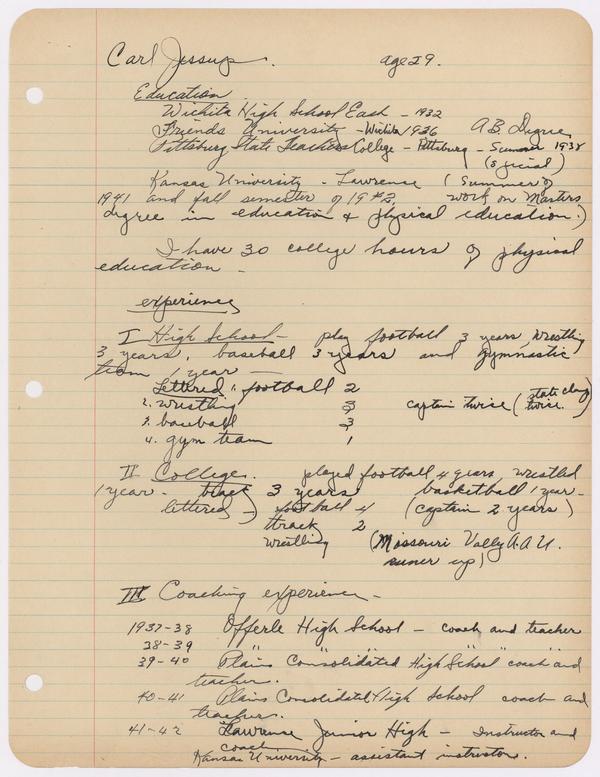 Carl Jessup. age 29.
Education
Wichita High School East - 1932
Friends University - Wichita 1936 A.B. Degree
Pittsburg State Teachers College - Pittsburg - Summer 1938
Kansas University - Lawrence (Summer of
1941 and fall semester of 1942. work on Masters
degree in education & physical education.)
I have 30 college hours of physical
education -
experience
I High School - play football 3 years, Wrestling
3 years, baseball 3 years and gymnastic
team 1 year -
Lettered 1. football 2
2. wrestling 3 captain twice (state champ twice.)
3. baseball 3
4. gym team 1
II College. played football 4 years, wrestled
1 year - track 3 years basketball 1 year -
lettered - football 4 (captain 2 years)
track 2
wrestling (Missouri Vally A.A.U.
runer up)
III Coaching experience -
1937-38 Offerle High School - coach and teacher
38-39 " " " " " "
39-40 Plains Consolidated High School coach and
teacher.
40-41 Plains Consolidated High School coach and
teacher.
41-42 Lawrence Junior High - Instructor and
coach
Kansas University - assistant instructor.